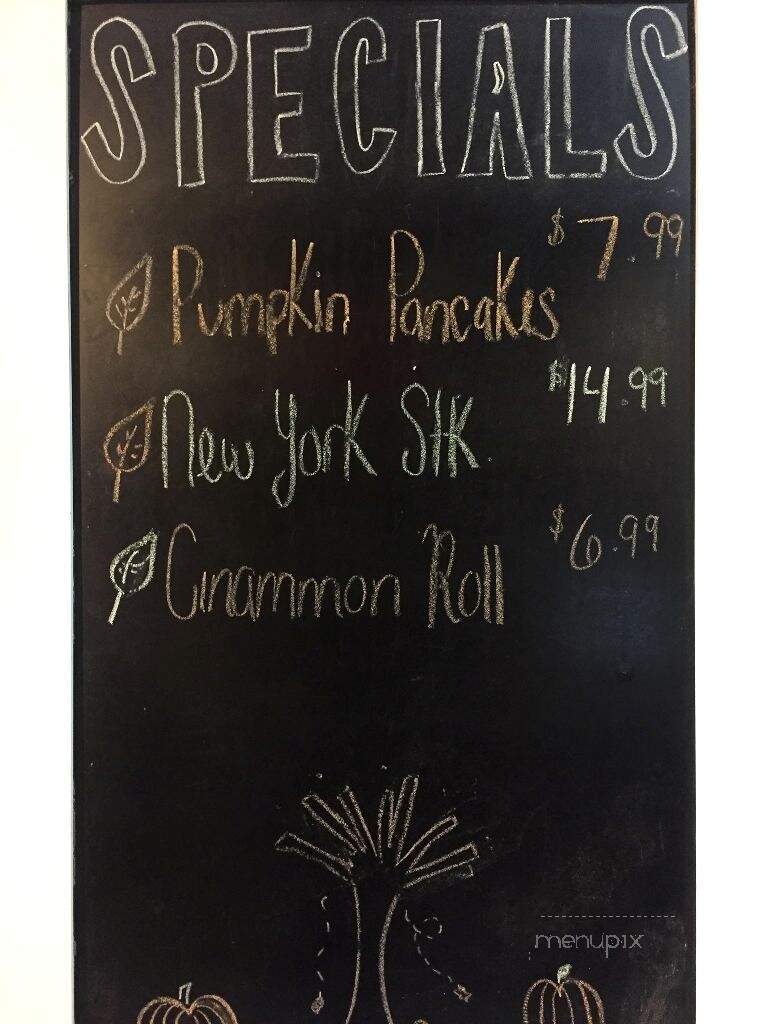 SPECIALS
Pumpkin Pancakes $7.99
New York Stk. $14.99
Cinammon Roll $6.99
menupix